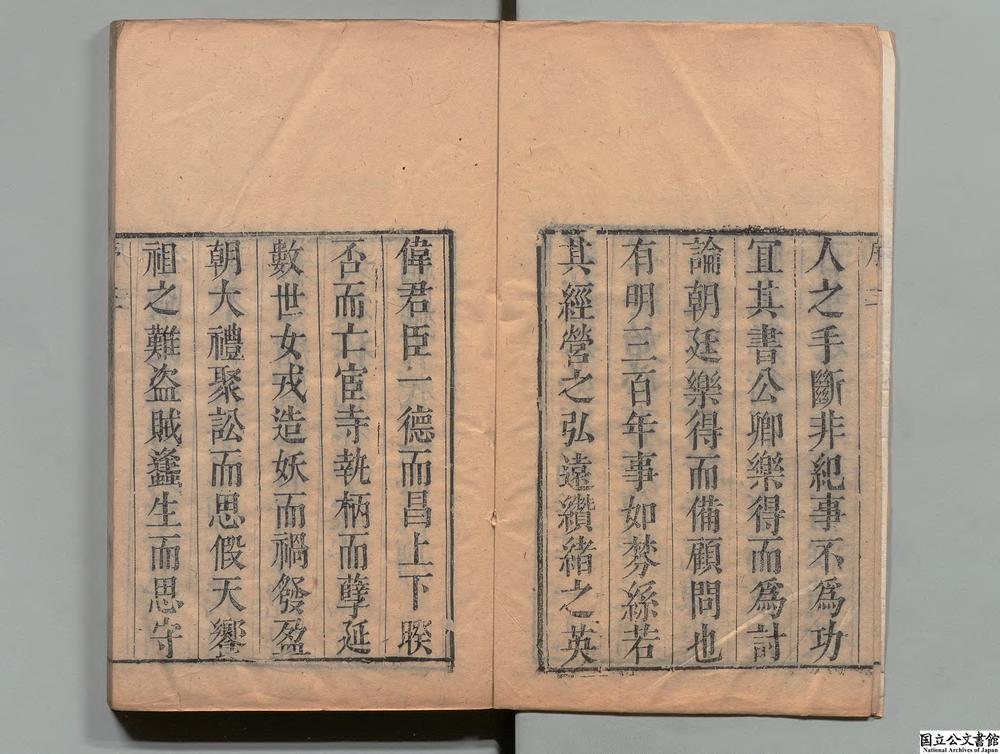 人之手斷非紀事不爲功
宜其書公卿樂得而爲討
論朝廷樂得而備顧問也
有明三百年事如棼絲若
其經營之弘遠纘緒之英
偉君臣一德而昌上下睽
否而亡宦寺執柄而孽延
數世女戎造妖而禍發盈
朝大禮聚訟而思假天響
祖之難盜賊蠭生而思守
国立公文書館
National Archives of Japan